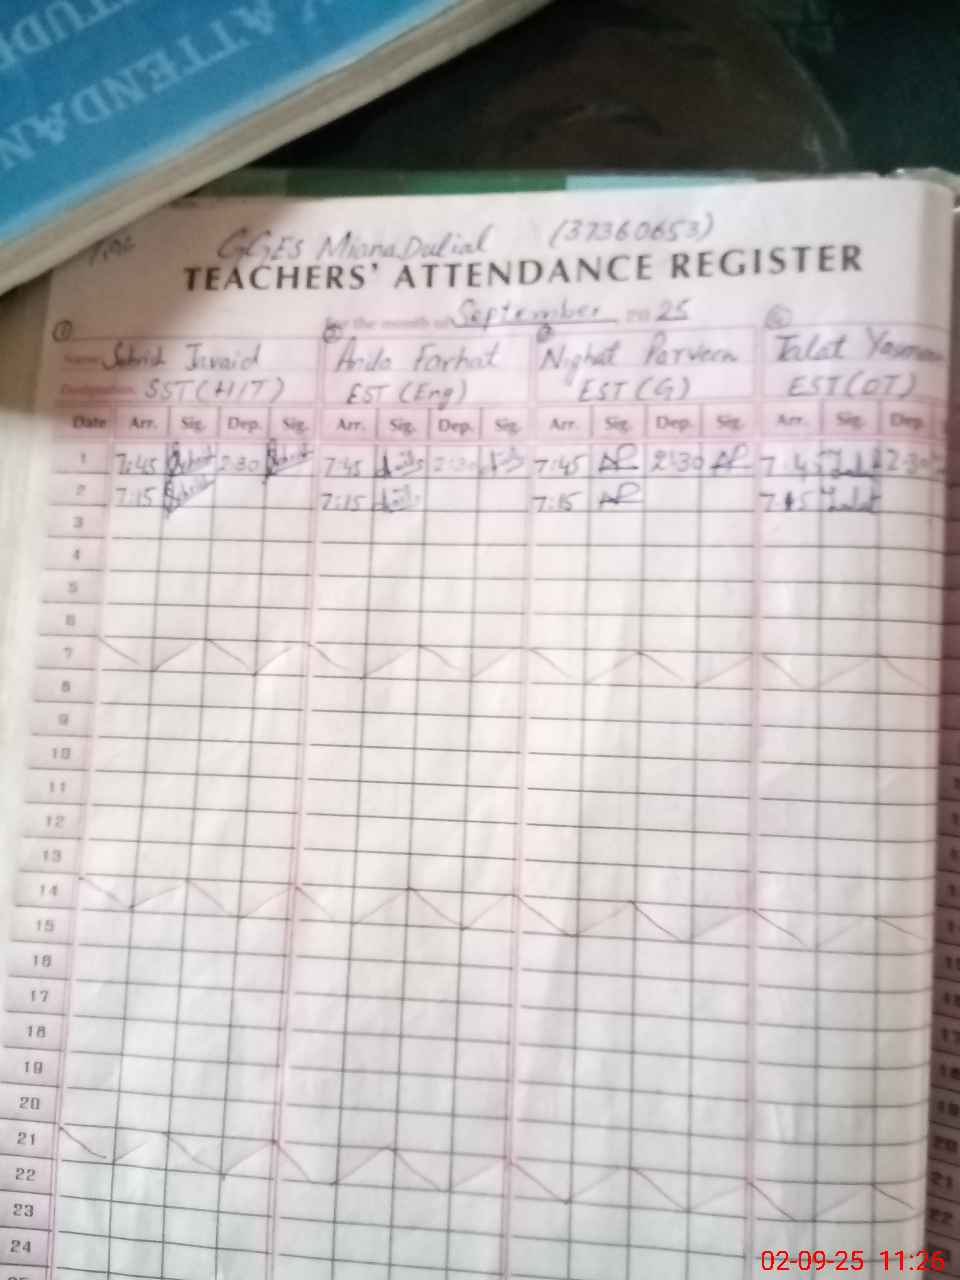 ATTENDAN
GGES Miana Dulial (37360653)
TEACHERS' ATTENDANCE REGISTER
For the month of September 20 25
① ② ③ ④
Name Javaid Farhat Nighat Parveen Talat
Designation SST (H/T) EST (Eng) EST (G) EST (OT)
Date Arr. Sig. Dep. Sig. Arr. Sig. Dep. Sig. Arr. Sig. Dep. Sig. Arr. Sig. Dep.
1 7:45 2:30 7:45 2:30 7:45 2:30 7:45 2:30
2 7:15 7:15 7:15 7:15
3
4
5
6
7
8
9
10
11
12
13
14
15
16
17
18
19
20
21
22
23
24
02-09-25 11:26